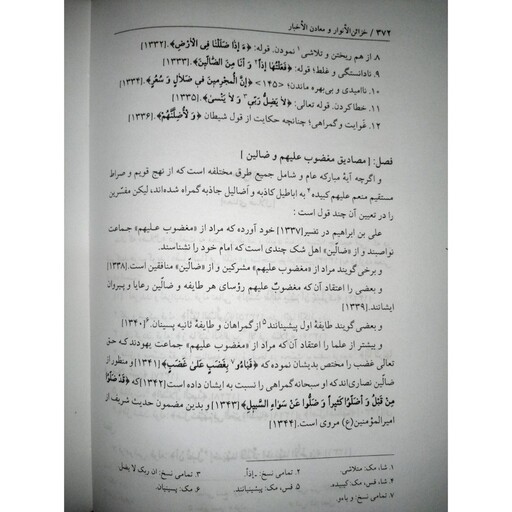 ۳۷۲ / خزائن الأنوار و معادن الأخبار
۸. از هم ریختن و تلاشی۱ نمودن. قوله: ﴿ءَ إِذٰا ضَلَلْنٰا فِی الْأَرْضِ﴾.[۱۳۳۲]
۹. نادانستگی و غلط؛ قوله: ﴿فَعَلْتُهٰا إِذاً۲ وَ أَنَا مِنَ الضّٰالِّینَ﴾.[۱۳۳۳]
۱۰. ناامیدی و بی‌بهره ماندن؛ <۱۴۵> ﴿إِنَّ الْمُجْرِمِینَ فِی ضَلٰالٍ وَ سُعُرٍ﴾.[۱۳۳۴]
۱۱. خطاکردن. قوله تعالی: ﴿لاٰ یَضِلُّ رَبِّی۳ وَ لاٰ یَنْسیٰ﴾.[۱۳۳۵]
۱۲. غوایت و گمراهی؛ چنانچه حکایت از قول شیطان ﴿وَ لَأُضِلَّنَّهُمْ﴾.[۱۳۳۶]
فصل: [ مصادیق مغضوب علیهم و ضالین ]
و اگرچه آیهٔ مبارکه عام و شامل جمیع طرق مختلفه است که از نهج قویم و صراط
مستقیم منعم علیهم کبیده۴ به اباطیل کاذبه و أضالیل جاذبه گمراه شده‌اند، لیکن مفسّرین
را در تعیین آن چند قول است:
علی بن ابراهیم در تفسیر[۱۳۳۷] خود آورده که مراد از «مغضوب علیهم» جماعت
نواصبند و از «ضالّین» اهل شک چندی است که امام خود را نشناسند.
و برخی گویند مراد از «مغضوب علیهم» مشرکین و از «ضالّین» منافقین است.[۱۳۳۸]
و بعضی را اعتقاد آن که مغضوبٌ علیهم رؤسای هر طایفه و ضالّین رعایا و پیروان
ایشانند.[۱۳۳۹]
و بعضی گویند طایفهٔ اول پیشینانند۵ از گمراهان و طایفهٔ ثانیه پسینان.۶[۱۳۴۰]
و بیشتر از علما را اعتقاد آن که مراد از «مغضوب علیهم» جماعت یهودند که حق
تعالی غضب را مختص بدیشان نموده که ﴿فَبٰاءُو۷ بِغَضَبٍ عَلیٰ غَضَبٍ﴾[۱۳۴۱] و منظور از
ضالّین نصاری‌اند که او سبحانه گمراهی را نسبت به ایشان داده است [۱۳۴۲]که ﴿قَدْ ضَلُّوا
مِنْ قَبْلُ وَ أَضَلُّوا کَثِیراً وَ ضَلُّوا عَنْ سَوٰاءِ السَّبِیلِ﴾[۱۳۴۳] و بدین مضمون حدیث شریف از
امیرالمؤمنین(ع) مروی است.[۱۳۴۴]
۱. شا، مک: متلاشی. ۲. تمامی نسخ: ـ إذاً. ۳. تمامی نسخ: ان ربک لا یضل
۴. شاه، مک: کبیده. ۵. قس، مک: پیشینیانند. ۶. قس، مک: پسینیان.
۷. تمامی نسخ: و باءو.